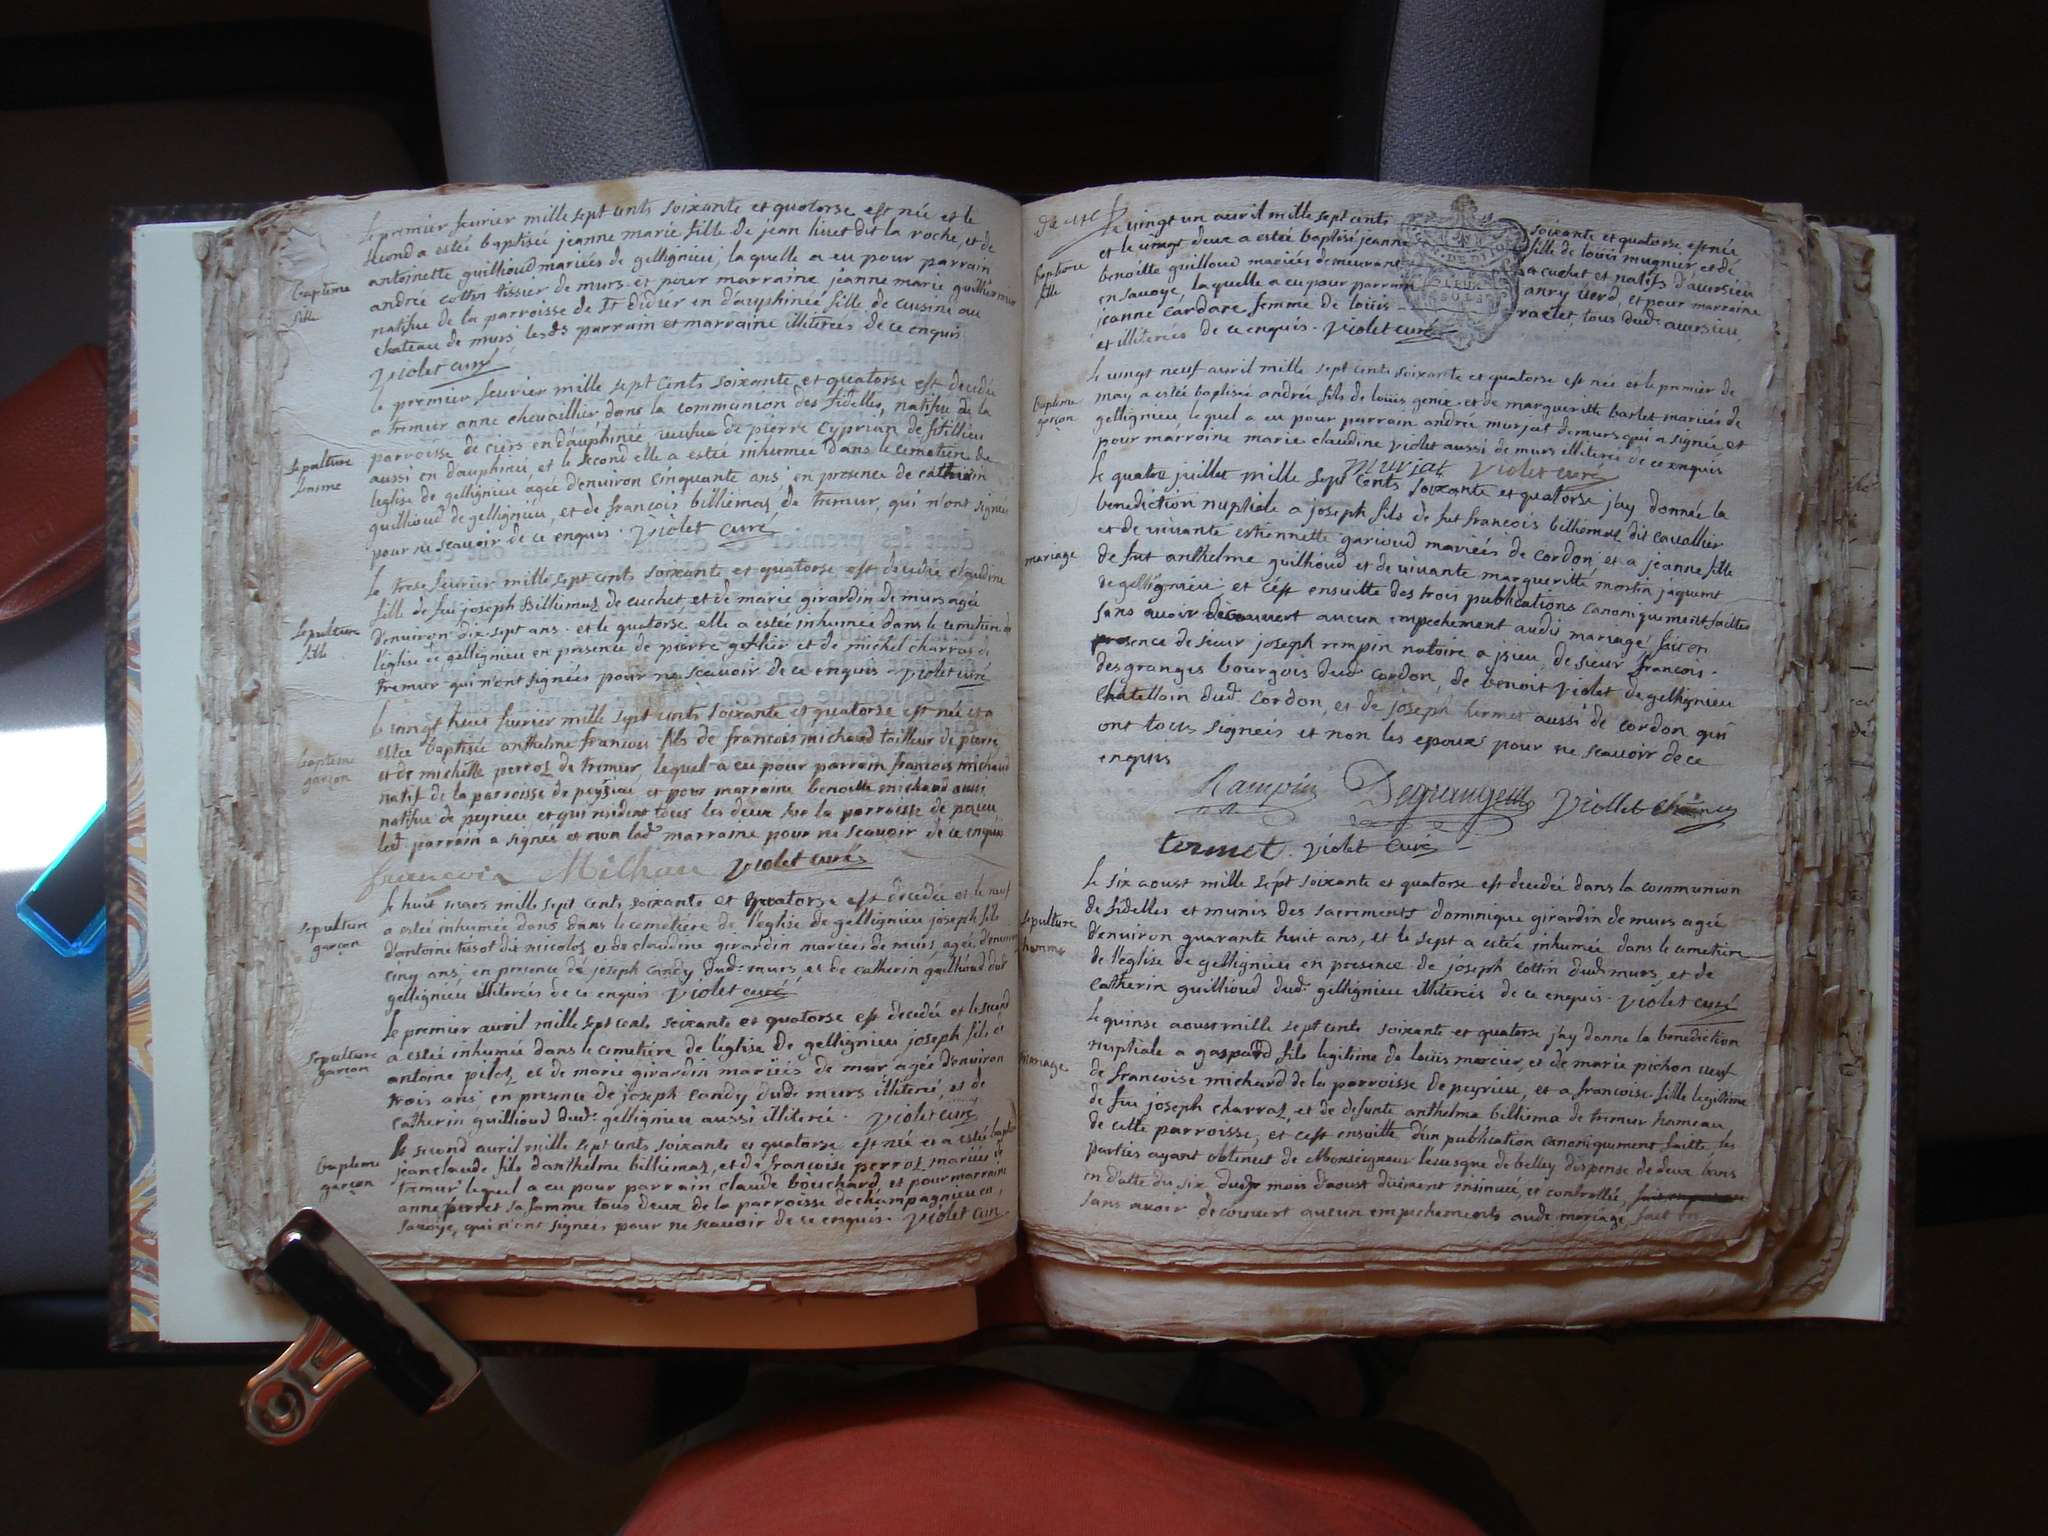 le premier feurier mille sept cents soixante et quatorse est née et le
second a estée baptisée jeanne marie fille de jean liuet dit la roche, et de
antoinette guilhoud mariées de gellignieu, la quelle a eu pour parrain
Bapteme
fille
andré cottin tissier de murs et pour marraine jeanne marie guilhermin
natifue de la parroisse de st didier en dauphinée fille de cuisine au
chateau de murs lesds parrain et marraine illiterées de ce enquis
violet curé
le premier feurier mille sept cents soixante et quatorse est decedée
a tremur anne cheuaillier dans la communion des fidelles, natifue de la
parroisse de ciers en dauphinée ueufue de pierre cyprian de fitillieu
Sepulture
femme
aussi en dauphineé et le second elle a estée inhumée dans le cemetiere de
leglise de gellignieu agée denuiron cinquante ans en presence de catherin
guillioud de gellignieu, et de francois billiémaz de tremur, qui n'ont signés
pour ne scauoir de ce enquis. violet curé
le trese feurier mille sept cents soixante et quatorse est decedée claudine
fille de feu joseph Billiemaz de cuchet, et de marie girardin de murs agée
Sepulture
fille
d'enuiron dix sept ans. et le quatorse elle a estée inhumée dans le cemetiere de
l'église de gellignieu en presence de pierre gothier et de michel charras de
tremur qui n'ont signées pour ne scauoir de ce enquis violet curé
le uingt heut feurier mille sept cents soixante et quatorse est née et a
estée baptisée anthelme francois fils de francois michaud tailleur de pierre
Bapteme
garçon
et de michelle perroz de tremur, lequel a eu pour parrain francois michaud
natif de la parroisse de peyrieu et pour marraine benoitte michaud aussi
natifue de peyrieu et qui resident tous les deux sur la parroisse de
led. parrain a signé et non lad. marraine pour ne scauoir de ce enquis
francois Michau violet curé
le huit mars mille sept cents soixante et quatorse est decedée et le neuf
Sepulture
garçon
a estée inhumée dans dans le cemetiére de l'église de gellignieu joseph fils
d'antoine tusot dit nicolas et de claudine girardin mariées de murs agée d'enuiron
cinq ans en presence de joseph candy dud. murs, et de catherin guilhoud dud
gellignieu illiterées de ce enquis violet curé
le premier auril mille sept cents soixante et quatorse est decedée et le second
Sepulture
garçon
a estée inhumée dans le cemetiére de l'église de gellignieu joseph fils et
antoine piloz et de marie girardin mariées de mur agée d'enuiron
trois ans en presence de joseph candy dud. murs illiteré, et de
catherin guillioud dud. gellignieu aussi illiteré. violet curé
le second auril mille sept cents soixante et quatorse est née et a estée baptisé
Bapteme
garçon
jean claude fils d'anthelme billiemaz, et de françoise perroz mariées de
tremur lequel a eu pour parrain claude bouchard et pour marraine
anne perret sa famme tous deux de la parroisse de champagnieu en
sauoye, qui n'ont signees pour ne scauoir de ce enquis. violet curé
le uingt un auril mille sept cents soixante et quatorse est née
et le uingt deux a estée baptisé jeanne fille de louis mugnier, et de
Bapteme
fille
benoitte guilloud mariées demeurant a cuchet et natifs d'auressieu
en sauoye, la quelle a eu pour parrain anry uerd, et pour marraine
jeanne cardare femme de loüis raclet, tous dud. auresieu,
et illiterées de ce enquis. violet curé
le uingt neuf auril mille sept cents soixante et quatorse est née et le premier de
Bapteme
garçon
may a estée baptisée andrée fils de loüis genex et de margueritte barlet mariées de
gellignieu lequel a eu pour parrain andré murjat de murs qui a signée et
pour marraine marie claudine violet aussi de murs illiterée de ce enquis
murjat violet curé
le quatre juillet mille sept cents soixante et quatorse j'ay donnée la
benediction nuptiale a joseph fils de fut francois billiémaz dit cauallier
et de uiuante estiennette garioud mariées de cordon et a jeanne fille
mariage
de fut anthelme guilhoud et de uiuante margueritte mortin jaquemt
de gellignieu; et c'est ensuitte des trois publications canoniquement faittes
sans auoir decouuert aucun empechement audit mariage, fait en
presence de sieur joseph rempin notaire a jzieu, de sieur francois
desgranges bourgois dud. cordon, de benoit violet de gellignieu
chatellain dud. cordon, et de joseph termet aussi de cordon qui
ont tous signées et non les epoux pour ne scauoir de ce
enquis
Rampin Degrangess Viollet chain
termet. violet curé
le six aoust mille sept soixante et quatorse est decedée dans la communion
de fidelles et munis des sacrements dominique girardin de murs agée
Sepulture
homme
d'enuiron quarante huit ans, et le sept a estée inhumée dans le cemetiere
de l'eglise de gellignieu en presence de joseph cottin dud. murs, et de
catherin guillioud dud. gellignieu illiterées de ce enquis. violet curé
le quinse aoust mille sept cents soixante et quatorse j'ay donne la benediction
nuptiale a gaspard fils legitime de loüis mercier, et de marie pichon ueuf
mariage
de francoise michard de la parroisse de peyrieu, et a francoise fille legitime
de feu joseph charraz, et de defunte anthelma billiema de tremur hameau
de cette parroisse, et c'est ensuitte d'un publication canoniquement faitte, les
parties ayant obtenut de Monseigneur l'euesque de belley dispense de deux bans
en datte du six dud. mois d'aoust duëment insinuée, et controllée,
sans auoir decouuert aucun empechements aud. mariage, fait en